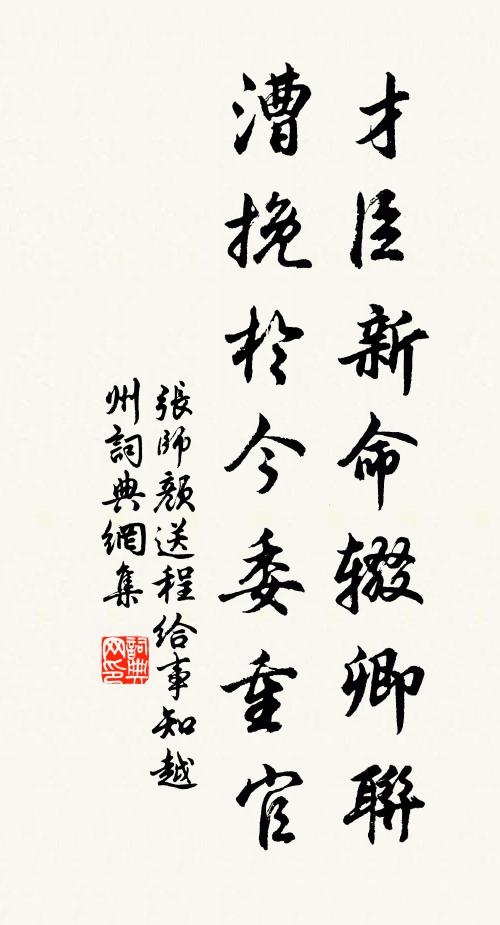 才臣新命辍卿聯
漕挽於今委重官
張師顔送程給事知越
州詞典網集
詞典
网印